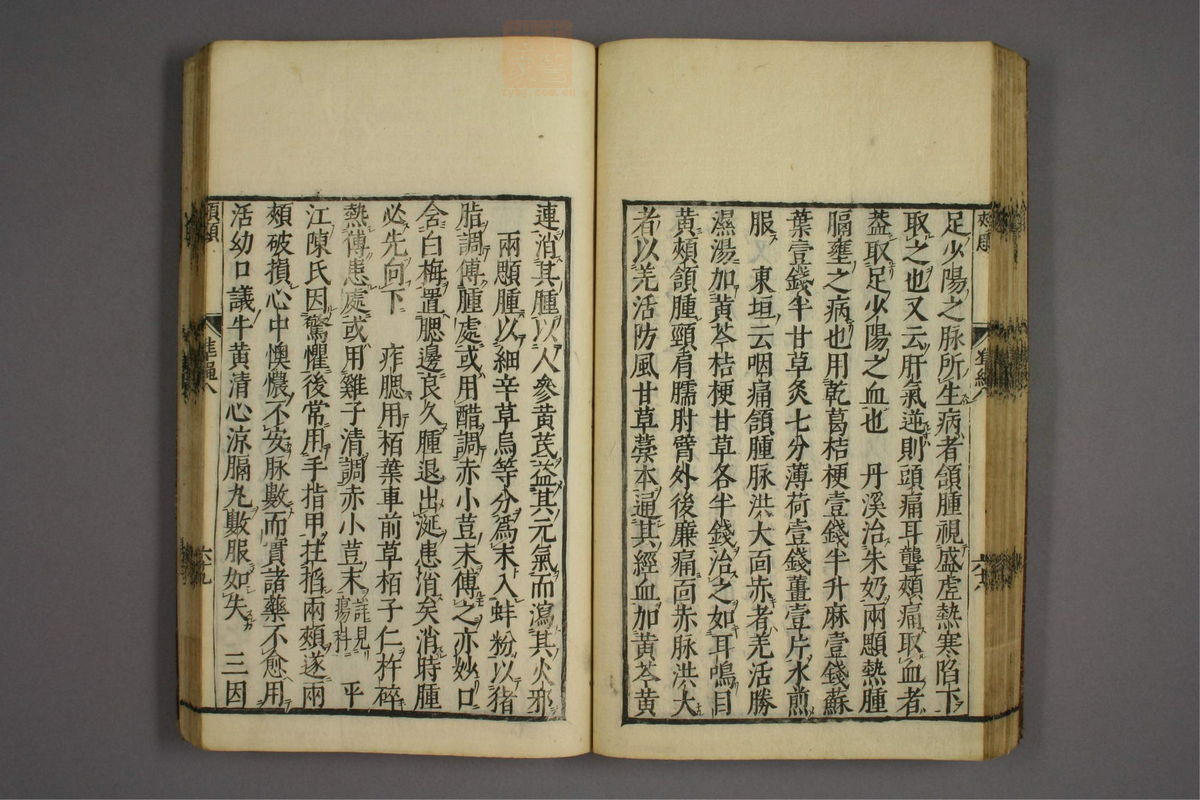 足少陽之脉所生病者頷腫視盛虚熱寒陷下
取之也又云肝氣逆則頭痛耳聾頰痛取血者
葢取足少陽之血也　丹溪治朱奶兩顋熱腫
膈壅之病也用乾葛桔梗壹錢半升麻壹錢蘇
葉壹錢半甘草炙七分薄荷壹錢薑壹片水煎
服　東垣云咽痛頷腫脉洪大面赤者羌活勝
濕湯加黄芩桔梗甘草各半錢治之如耳鳴目
黄頰頷腫頸肩臑肘臂外後廉痛面赤脉洪大
者以羌活防風甘草藁本通其經血加黄芩黄
連消其腫以人參黄芪益其元氣而瀉其火邪
兩顋腫以細辛草烏等分爲末入蚌粉以猪
脂調傅腫處或用醋調赤小荳末傅之亦妙口
含白梅置腮邊良久腫退出涎患消矣消時腫
必先向下　痄腮用栢葉車前草栢子仁杵碎
熱傅患處或用雞子清調赤小荳末詳見瘍科　平
江陳氏因驚懼後常用手指甲拄掐兩頰遂兩
頰破損心中懊憹不安脉數而實諸藥不愈用
活幼口議牛黄清心涼膈丸數服如失　三因
準繩八
六十九